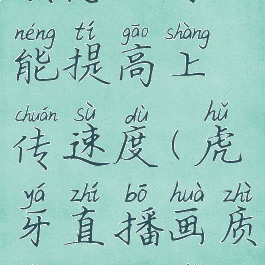 néng tí gāo shàng
能提高上
chuán sù dù hǔ
传速度(虎
yá zhí bō huà zhì
牙直播画质